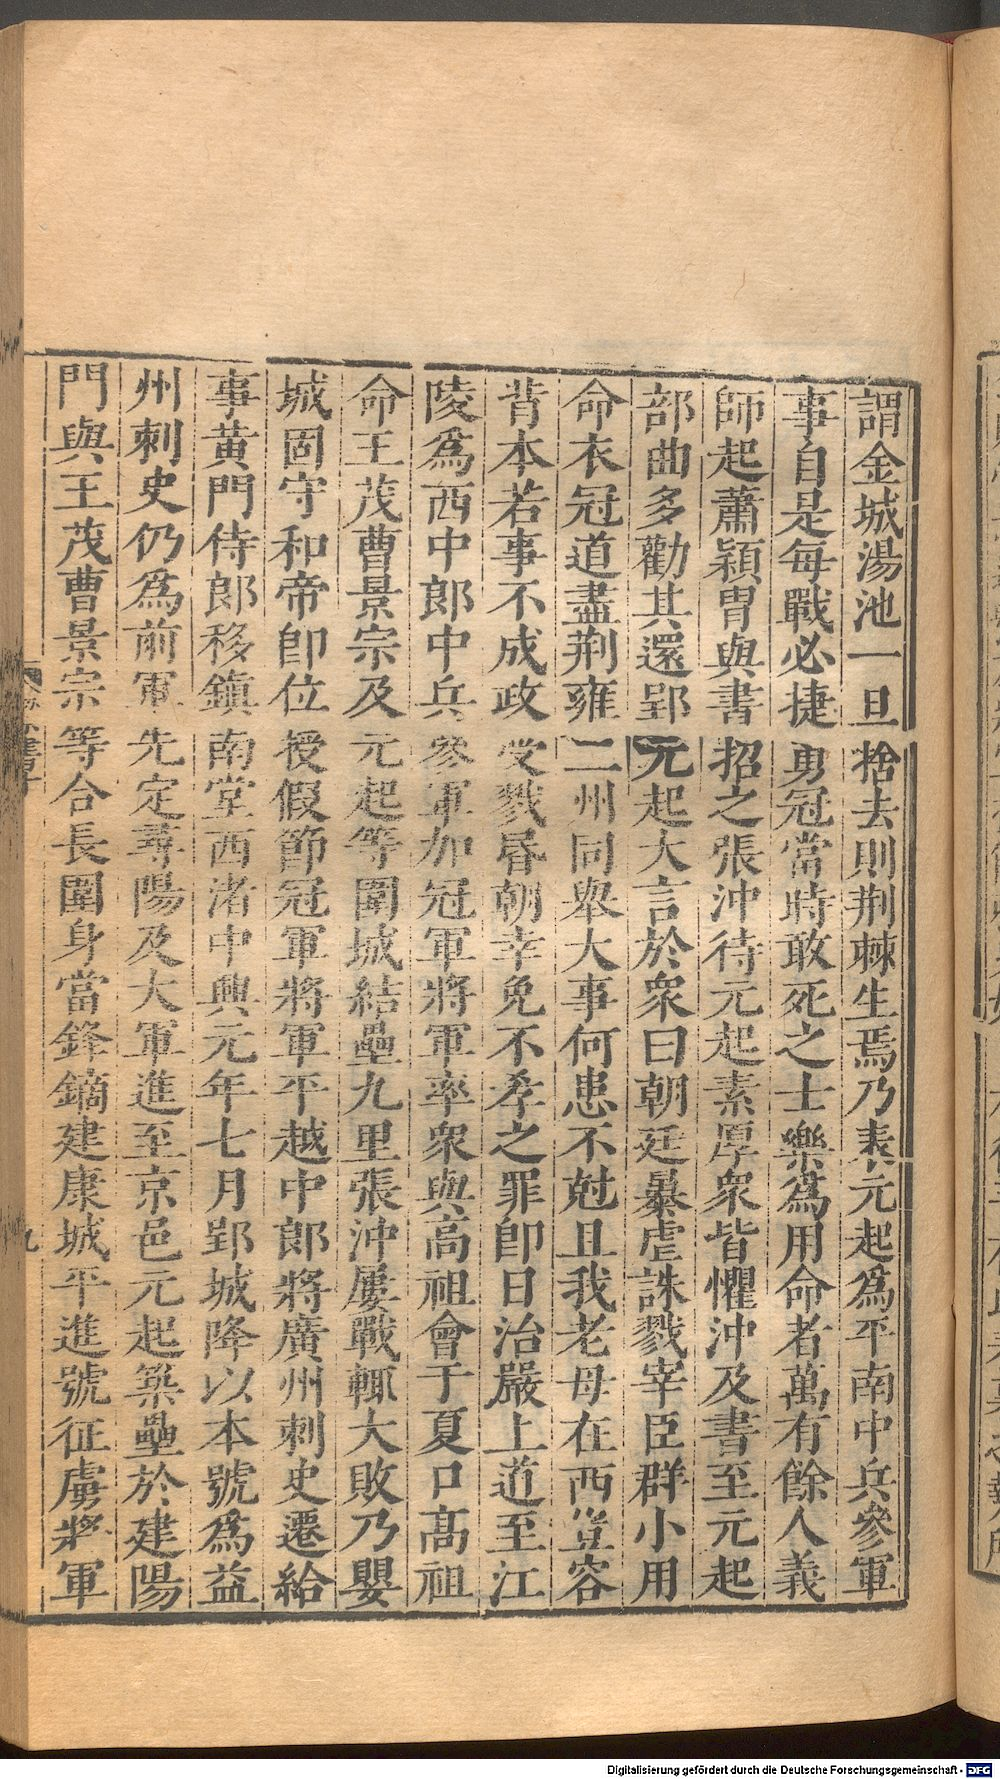 謂金城湯池一旦捨去則荆棘生焉乃表元起爲平南中兵參軍
事自是每戰必捷勇冠當時敢死之士樂爲用命者萬有餘人義
師起蕭穎冑與書招之張沖待元起素厚衆皆懼沖及書至元起
部曲多勸其還郢元起大言於衆曰朝廷暴虐誅戮宰臣群小用
命衣冠道盡荆雍二州同舉大事何患不尅且我老母在西豈容
背本若事不成政受戮昏朝幸免不孝之罪卽日治嚴上道至江
陵爲西中郎中兵參軍加冠軍將軍率衆與高祖會于夏口髙祖
命王茂曹景宗及元起等圍城結壘九里張沖屢戰輒大敗乃嬰
城固守和帝卽位授假節冠軍將軍平越中郎將廣州刺史遷給
事黃門侍郎移鎭南堂西渚中興元年七月郢城降以本號爲益
州刺史仍爲前軍先定尋陽及大軍進至京邑元起築壘於建陽
門與王茂曹景宗等合長圍身當鋒鏑建康城平進號征虜將軍
九
Digitalisierung gefördert durch die Deutsche Forschungsgemeinschaft - DFG